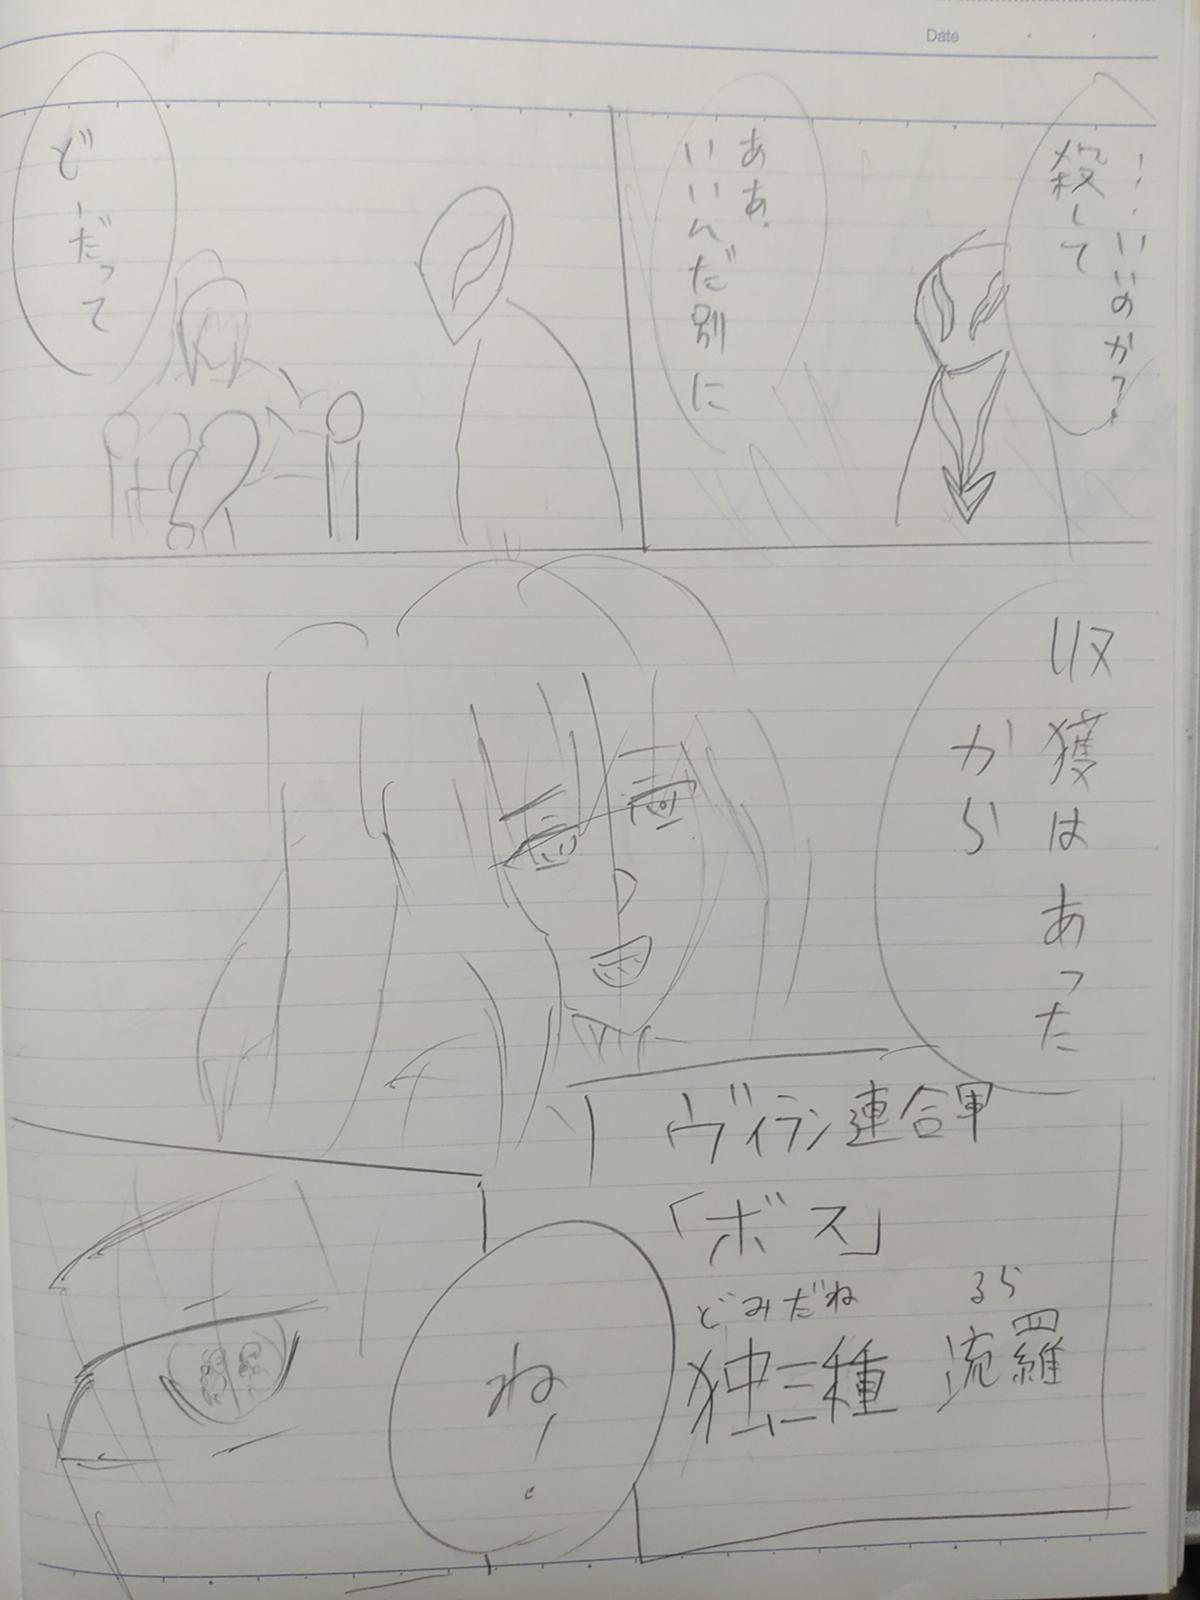 Date
…いいのか?
殺して
ああ、
いいんだ別に
どーだって
収獲はあった
から
ヴィラン連合軍
「ボス」
どみだね るら
独三種 流羅
ね!